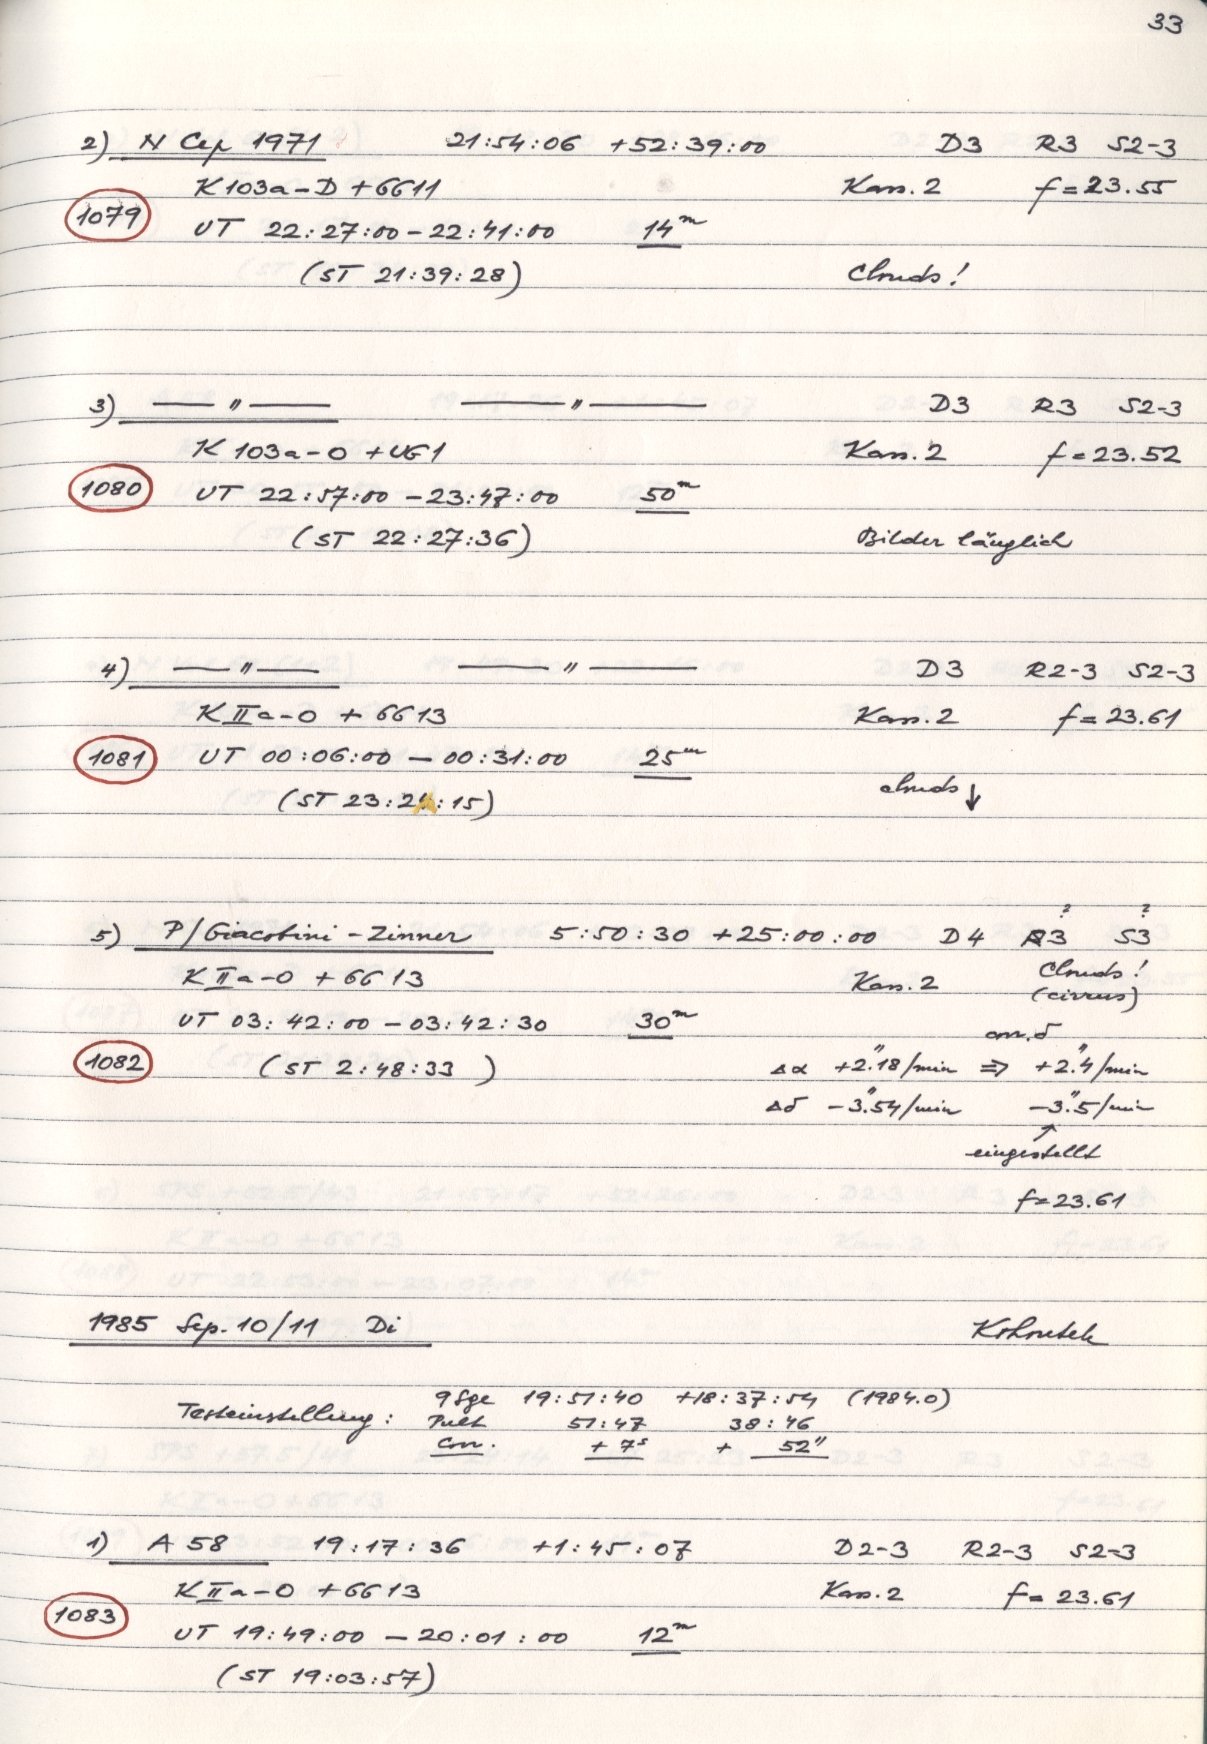 33
2) N Cep 1971 21:54:06 +52:39:00 D3 R3 S2-3
K 103a-D + GG11 Kass. 2 f = 23.55
1079 UT 22:27:00 - 22:41:00 14m
(ST 21:39:28) Clouds!
3) — " — — " — D3 R3 S2-3
K 103a-O + UG1 Kass. 2 f = 23.52
1080 UT 22:57:00 - 23:47:00 50m
(ST 22:27:36) Bilder länglich
4) — " — — " — D3 R2-3 S2-3
K IIa-O + GG13 Kass. 2 f = 23.61
1081 UT 00:06:00 - 00:31:00 25m
(ST 23:2 :15) clouds ↓
? ?
5) P/Giacobini-Zinner 5:50:30 +25:00:00 D4 R3 S3
K IIa-O + GG13 Kass. 2 Clouds!
(cirrus)
UT 03:42:00 - 03:42:30 30m corr. δ
1082 (ST 2:48:33 ) Δα +2".18/min ⇒ +2".4/min
Δδ -3".54/min -3".5/min
↑
eingestellt
f = 23.61
1985 Sep. 10/11 Di Kohoutek
9 Sge 19:51:40 +18:37:54 (1984.0)
Testeinstellung: Pult 51:47 38:46
Corr. + 7s + 52"
1) A 58 19:17:36 +1:45:07 D2-3 R2-3 S2-3
K IIa-O + GG13 Kass. 2 f = 23.61
1083 UT 19:49:00 - 20:01:00 12m
(ST 19:03:57)